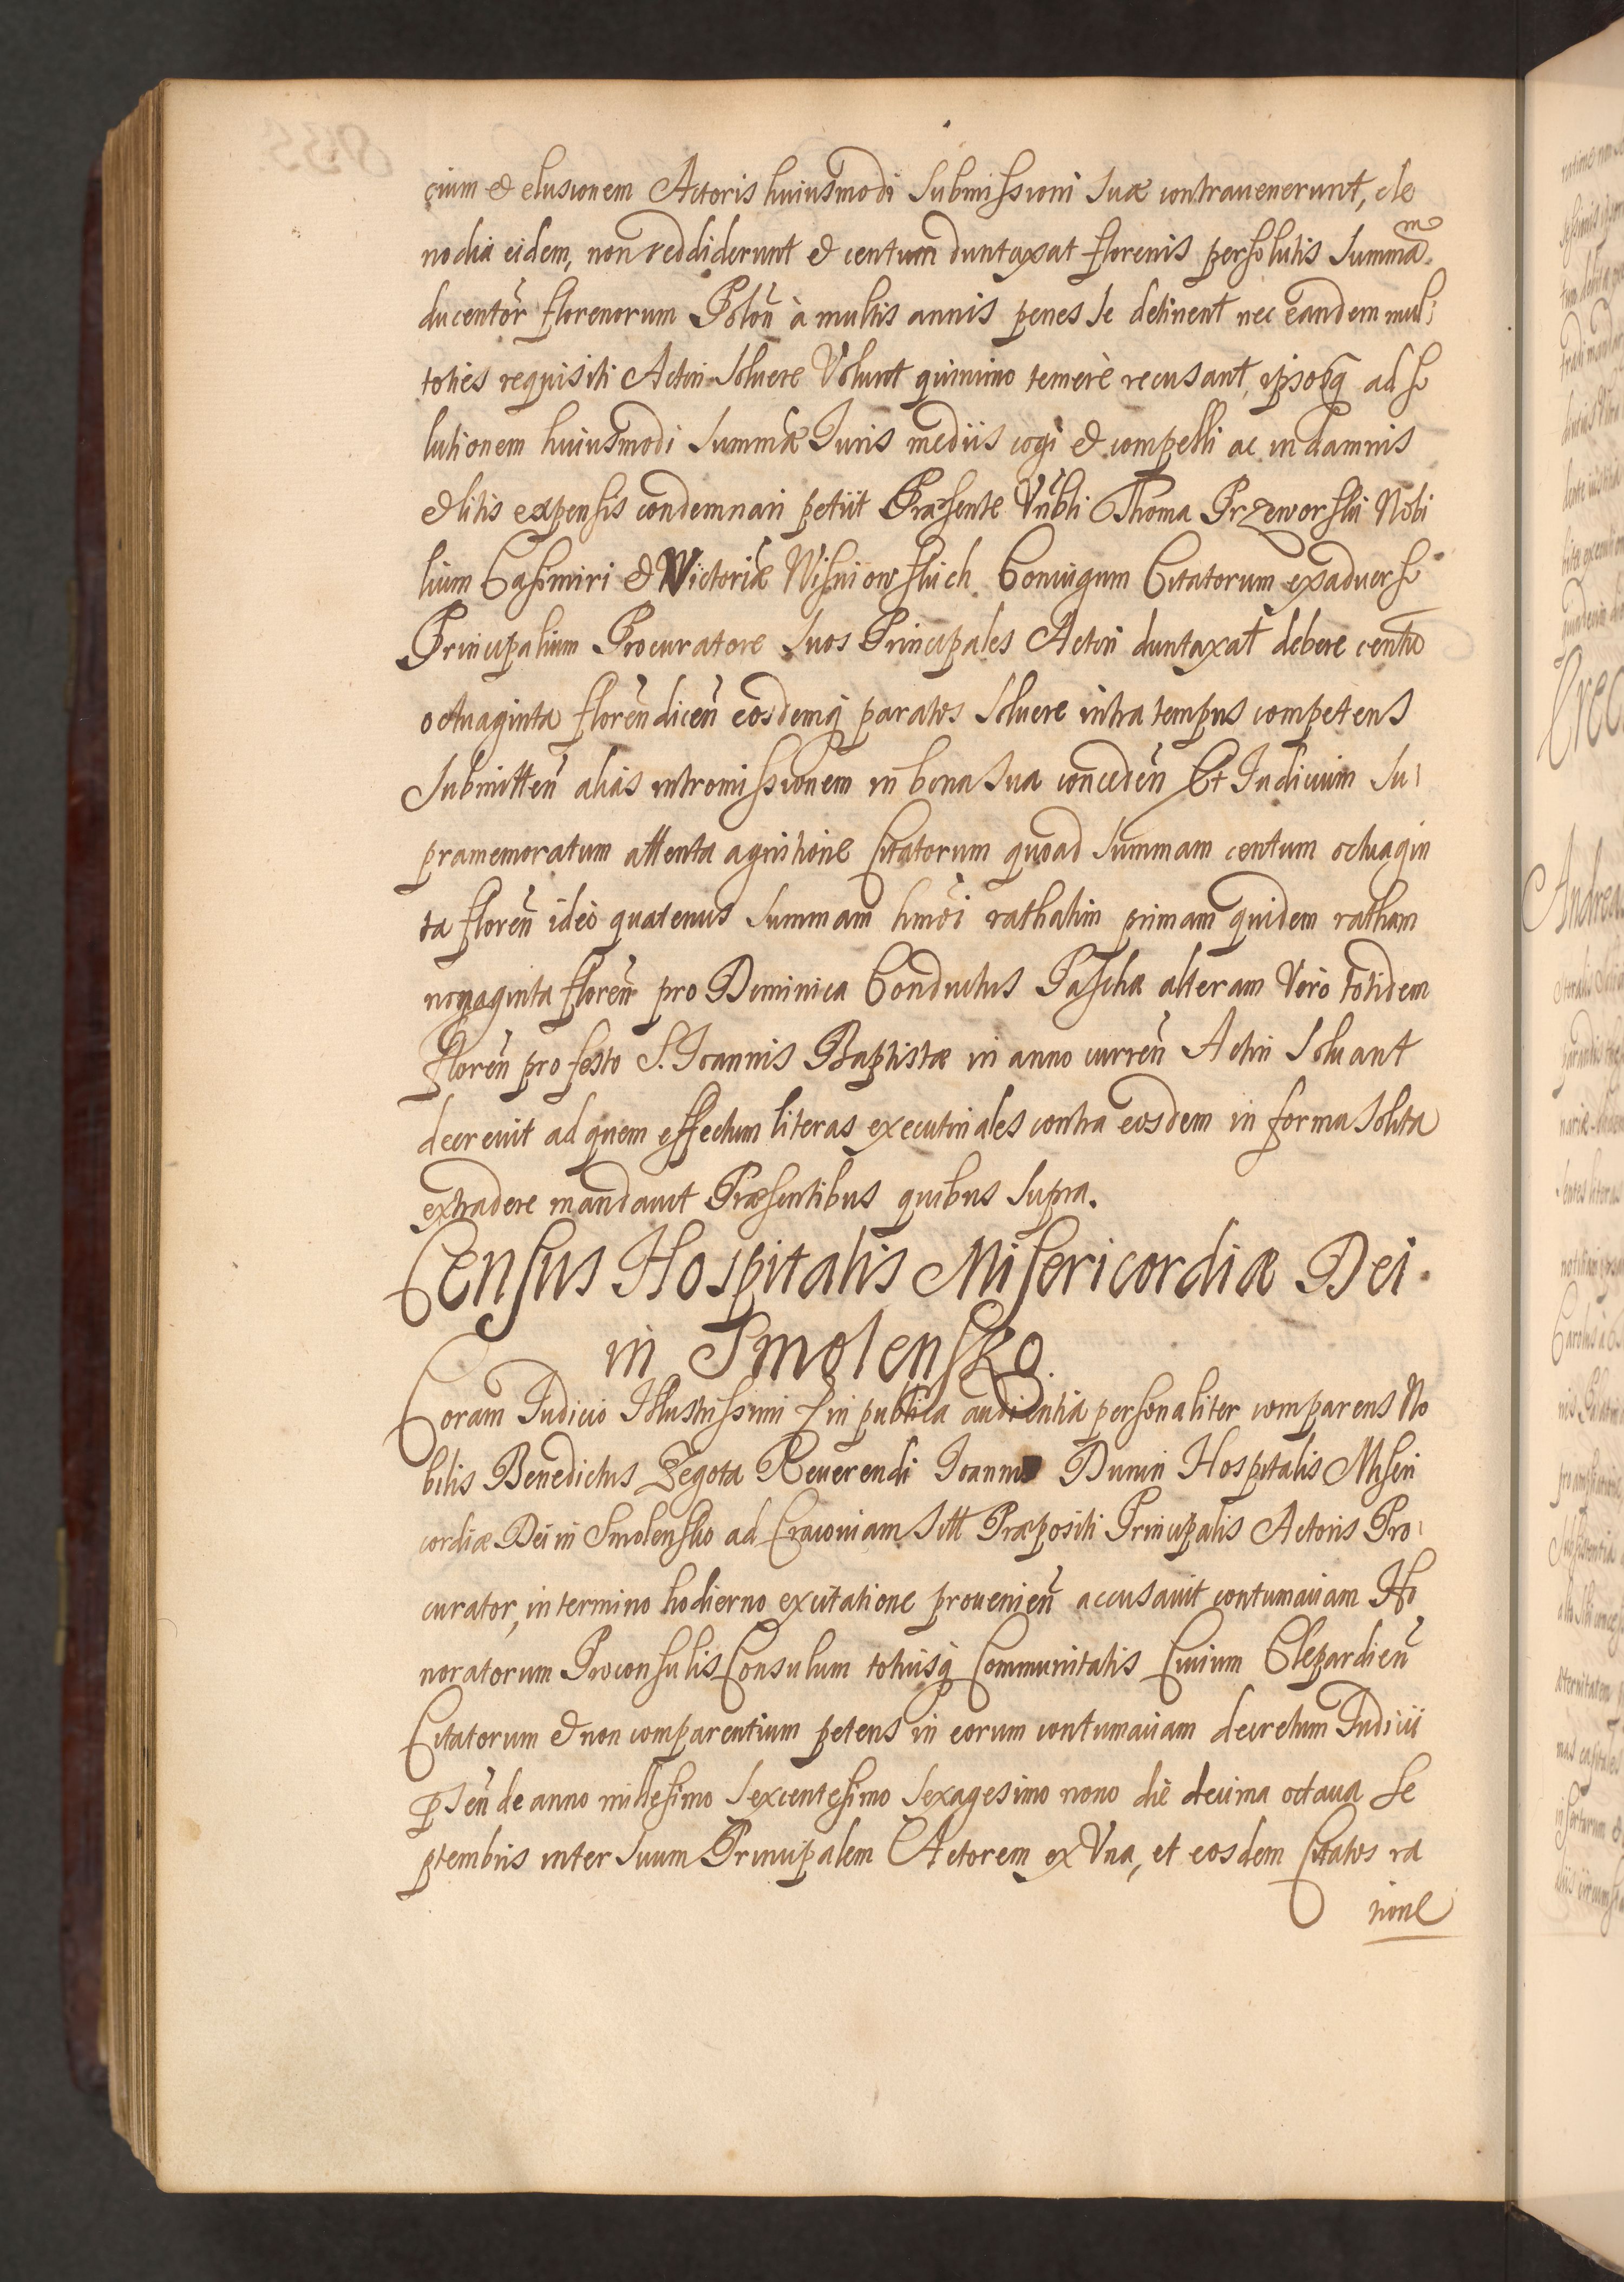 cium & elusionem Actoris huiusmodi submissioni suæ contrauenerunt, cle
nodia eidem, non reddiderunt & centum duntaxat florenis persolutis summam
ducentōr florenorum Polōn à multis annis penes se detinent nec eandem mul:
toties requisiti Actori soluere Volunt quinimo temerè recusant, ipsosq ad so
lutionem huiusmodi summæ Iuris mediis cogi & compelli ac in damnis
& litis expensis condemnari petiit Præsente Vnbli Thoma Przeworski Nobi
lium Casimiri & Victoriæ Wisniowskich Coniugum Citatorum exaduerso
Principalium Procuratore suos Principales Actori duntaxat debere centū
octuaginta florēn dicēn eosdemq paratos soluere intra tempus competens
submittēn alias intromissionem in bona sua concedēn Et Iudicium su:
pramemoratum attenta agnitione Citatorum quoad summam centum octuagin
ta florēn ideò quatenus summam hmōi rathatim primam quidem ratham
nonaginta florēn pro Dominica Conductus Pascha alteram Vero totidem
florēn pro festo S. Ioannis Baptistæ in anno currēn Actori soluant
decreuit ad quem effectum literas executoriales contra eosdem in forma solita
extradere mandauit Præsentibus quibus supra.
Census Hospitalis Misericordiæ Dei
in Smolensko.
Coram Iudicio Illustrissimi & in publica audientia personaliter comparens No
bilis Benedictus Zegota Reuerendi Ioannis Dunin Hospitalis Miseri
cordiæ Dei in Smolensko ad Cracouiam sitt Præpositi Principalis Actoris Pro:
curator, in termino hodierno ex citatione prouenieñ accusauit contumaciam Ho
noratorum Proconsulis Consulum totiusq Communitatis Ciuium Clepardieñ
Citatorum & non comparentium petens in eorum contumaciam decretum Iudicii
pseñ de anno millesimo sexcentesimo sexagesimo nono die decima octaua Se
ptembris inter suum Principalem Actorem ex Vna, et eosdem Citatos ra
tione